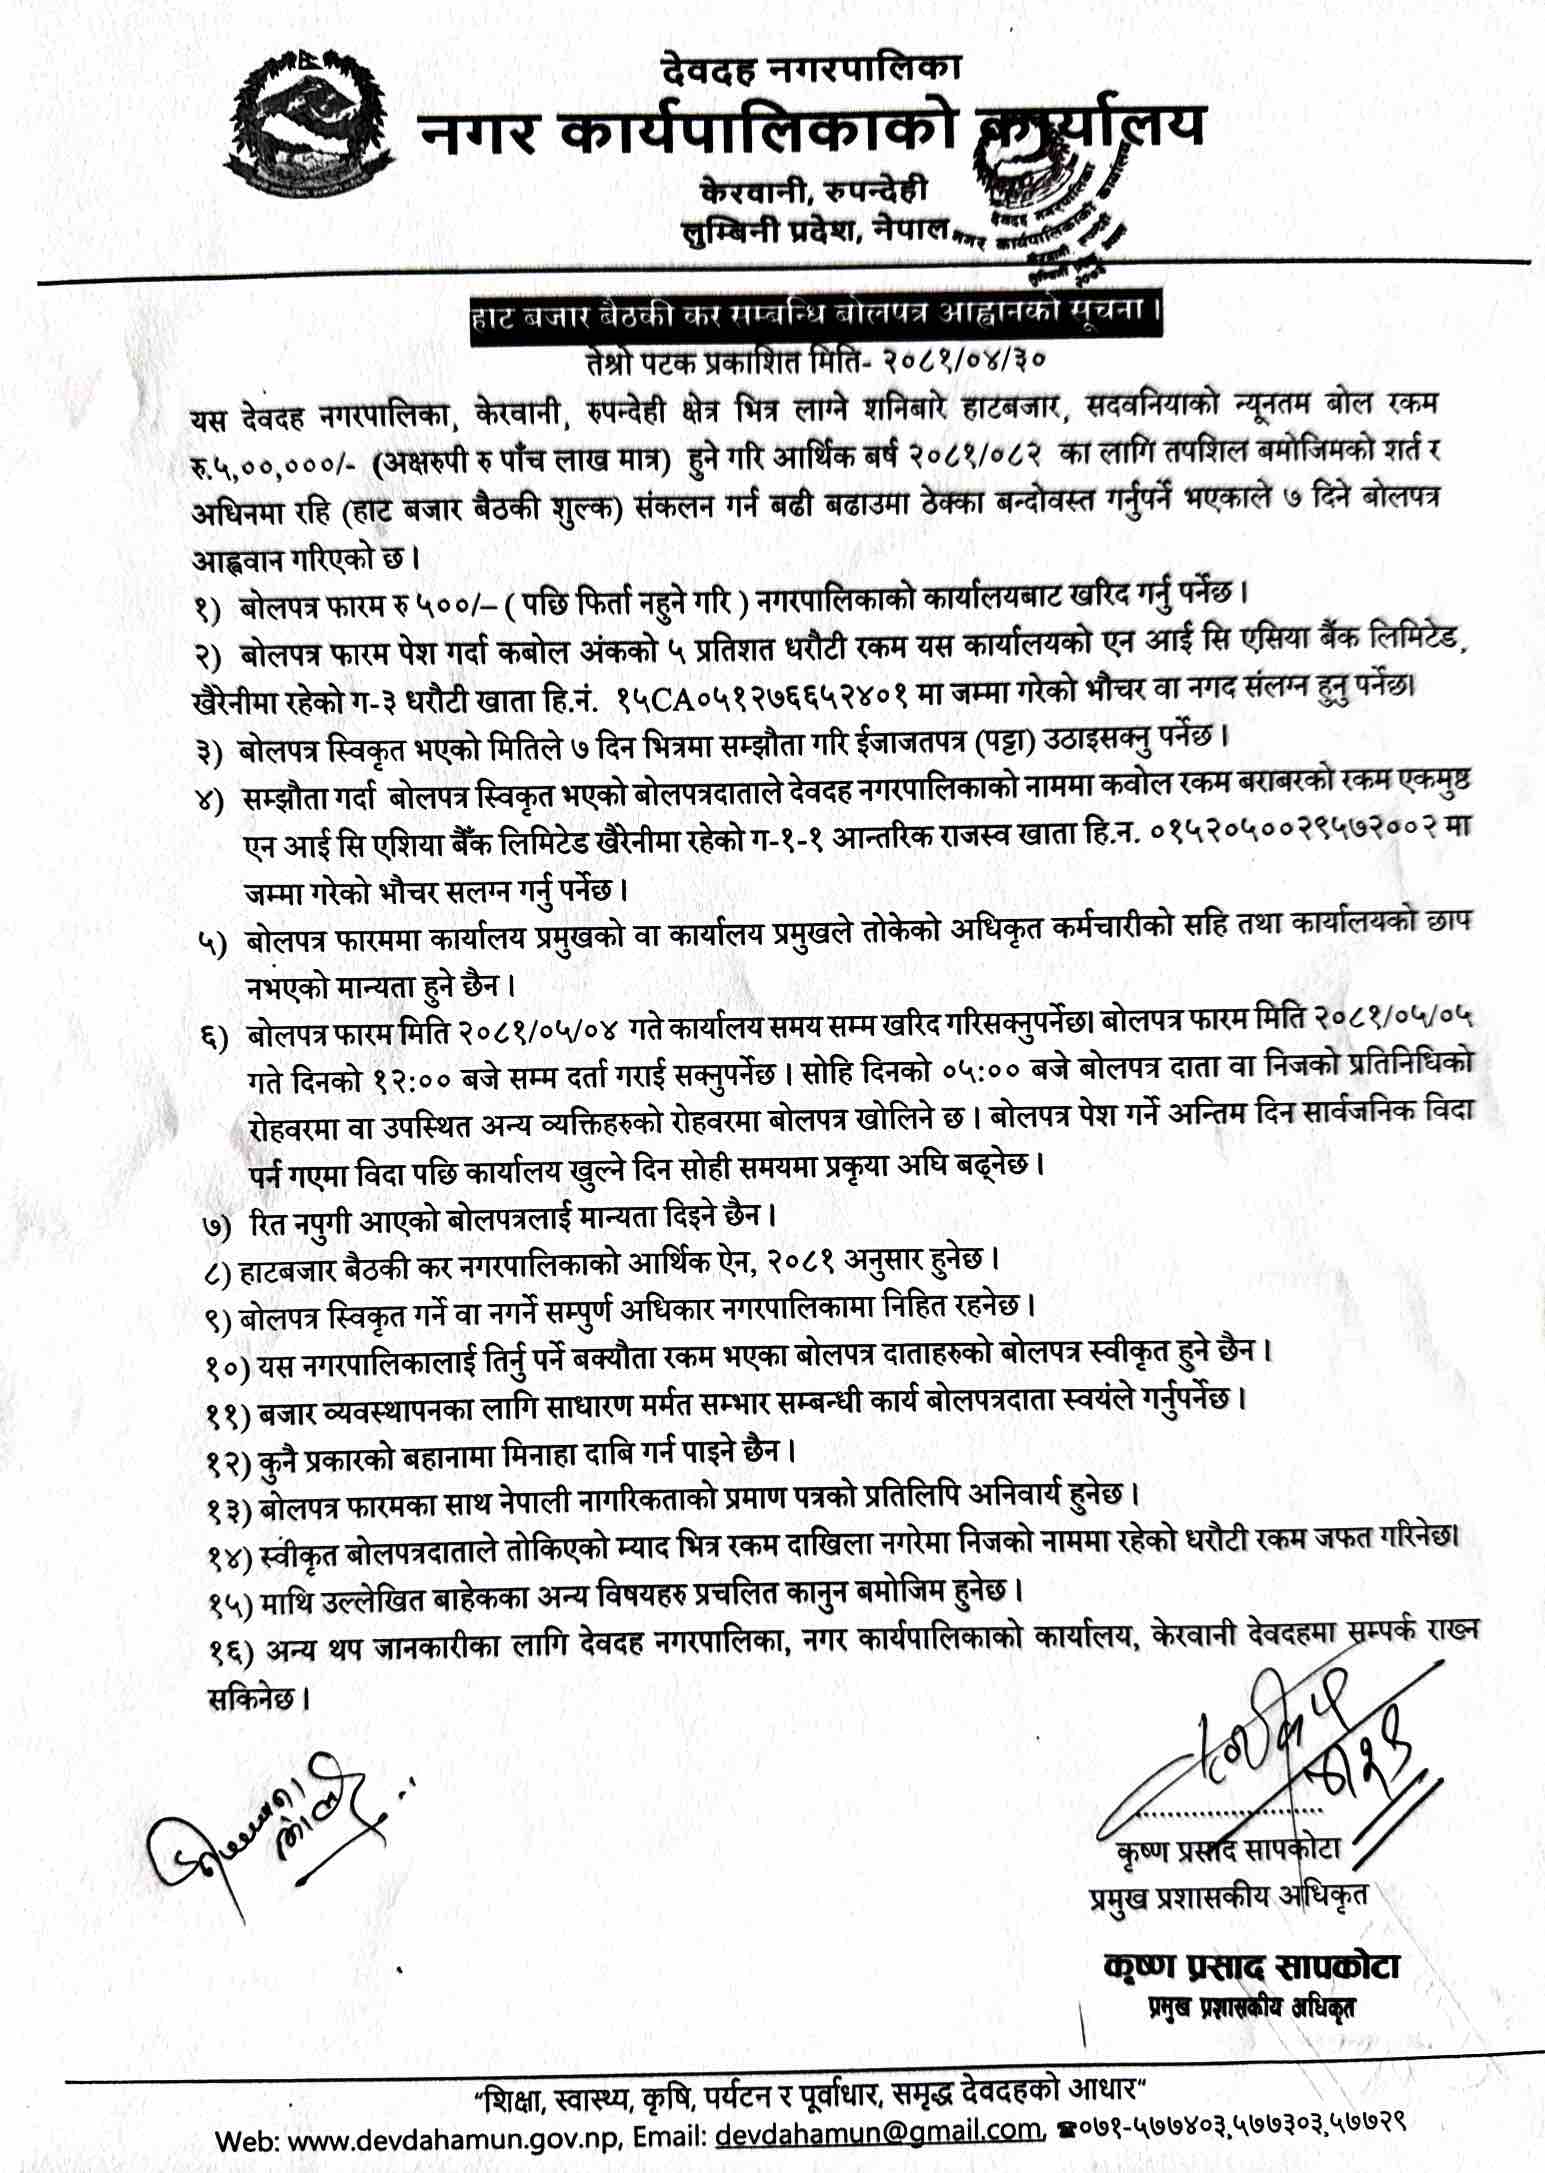 देवदह नगरपालिका
नगर कार्यपालिकाको कार्यालय
केरवानी, रुपन्देही
लुम्बिनी प्रदेश, नेपाल
देवदह नगरपालिका
नगर कार्यपालिकाको कार्यालय
हाट बजार बैठकी कर सम्बन्धि बोलपत्र आह्वानको सूचना ।
तेश्रो पटक प्रकाशित मिति- २०८१/०४/३०
यस देवदह नगरपालिका, केरवानी, रुपन्देही क्षेत्र भित्र लाग्ने शनिबारे हाटबजार, सदवनियाको न्यूनतम बोल रकम
रु.५,००,०००/- (अक्षरुपी रु पाँच लाख मात्र) हुने गरि आर्थिक बर्ष २०८१/०८२ का लागि तपशिल बमोजिमको शर्त र
अधिनमा रहि (हाट बजार बैठकी शुल्क) संकलन गर्न बढी बढाउमा ठेक्का बन्दोवस्त गर्नुपर्ने भएकाले ७ दिने बोलपत्र
आह्ववान गरिएको छ ।
१) बोलपत्र फारम रु ५००/– ( पछि फिर्ता नहुने गरि ) नगरपालिकाको कार्यालयबाट खरिद गर्नु पर्नेछ ।
२) बोलपत्र फारम पेश गर्दा कबोल अंकको ५ प्रतिशत धरौटी रकम यस कार्यालयको एन आई सि एसिया बैंक लिमिटेड,
खैरेनीमा रहेको ग-३ धरौटी खाता हि.नं. १५CA०५१२७६६५२४०१ मा जम्मा गरेको भौचर वा नगद संलग्न हुनु पर्नेछ।
३) बोलपत्र स्विकृत भएको मितिले ७ दिन भित्रमा सम्झौता गरि ईजाजतपत्र (पट्टा) उठाइसक्नु पर्नेछ ।
४) सम्झौता गर्दा बोलपत्र स्विकृत भएको बोलपत्रदाताले देवदह नगरपालिकाको नाममा कवोल रकम बराबरको रकम एकमुष्ठ
एन आई सि एशिया बैँक लिमिटेड खैरेनीमा रहेको ग-१-१ आन्तरिक राजस्व खाता हि.न. ०१५२०५००२९५७२००२ मा
जम्मा गरेको भौचर सलग्न गर्नु पर्नेछ ।
५) बोलपत्र फारममा कार्यालय प्रमुखको वा कार्यालय प्रमुखले तोकेको अधिकृत कर्मचारीको सहि तथा कार्यालयको छाप
नभएको मान्यता हुने छैन ।
६) बोलपत्र फारम मिति २०८१/०५/०४ गते कार्यालय समय सम्म खरिद गरिसक्नुपर्नेछ। बोलपत्र फारम मिति २०८१/०५/०५
गते दिनको १२:०० बजे सम्म दर्ता गराई सक्नुपर्नेछ । सोहि दिनको ०५:०० बजे बोलपत्र दाता वा निजको प्रतिनिधिको
रोहवरमा वा उपस्थित अन्य व्यक्तिहरुको रोहवरमा बोलपत्र खोलिने छ । बोलपत्र पेश गर्ने अन्तिम दिन सार्वजनिक विदा
पर्न गएमा विदा पछि कार्यालय खुल्ने दिन सोही समयमा प्रकृया अघि बढ्नेछ ।
७) रित नपुगी आएको बोलपत्रलाई मान्यता दिइने छैन ।
८) हाटबजार बैठकी कर नगरपालिकाको आर्थिक ऐन, २०८१ अनुसार हुनेछ ।
९) बोलपत्र स्विकृत गर्ने वा नगर्ने सम्पुर्ण अधिकार नगरपालिकामा निहित रहनेछ ।
१०) यस नगरपालिकालाई तिर्नु पर्ने बक्यौता रकम भएका बोलपत्र दाताहरुको बोलपत्र स्वीकृत हुने छैन ।
११) बजार व्यवस्थापनका लागि साधारण मर्मत सम्भार सम्बन्धी कार्य बोलपत्रदाता स्वयंले गर्नुपर्नेछ ।
१२) कुनै प्रकारको बहानामा मिनाहा दाबि गर्न पाइने छैन ।
१३) बोलपत्र फारमका साथ नेपाली नागरिकताको प्रमाण पत्रको प्रतिलिपि अनिवार्य हुनेछ ।
१४) स्वीकृत बोलपत्रदाताले तोकिएको म्याद भित्र रकम दाखिला नगरेमा निजको नाममा रहेको धरौटी रकम जफत गरिनेछ।
१५) माथि उल्लेखित बाहेकका अन्य विषयहरु प्रचलित कानुन बमोजिम हुनेछ ।
१६) अन्य थप जानकारीका लागि देवदह नगरपालिका, नगर कार्यपालिकाको कार्यालय, केरवानी देवदहमा सम्पर्क राख्न
सकिनेछ ।
कृष्ण प्रसाद सापकोटा
प्रमुख प्रशासकीय अधिकृत
कृष्ण प्रसाद सापकोटा
प्रमुख प्रशासकीय अधिकृत
“शिक्षा, स्वास्थ्य, कृषि, पर्यटन र पूर्वाधार, समृद्ध देवदहको आधार“
Web: www.devdahamun.gov.np, Email: devdahamun@gmail.com, ☎०७१-५७७४०३,५७७३०३,५७७२९